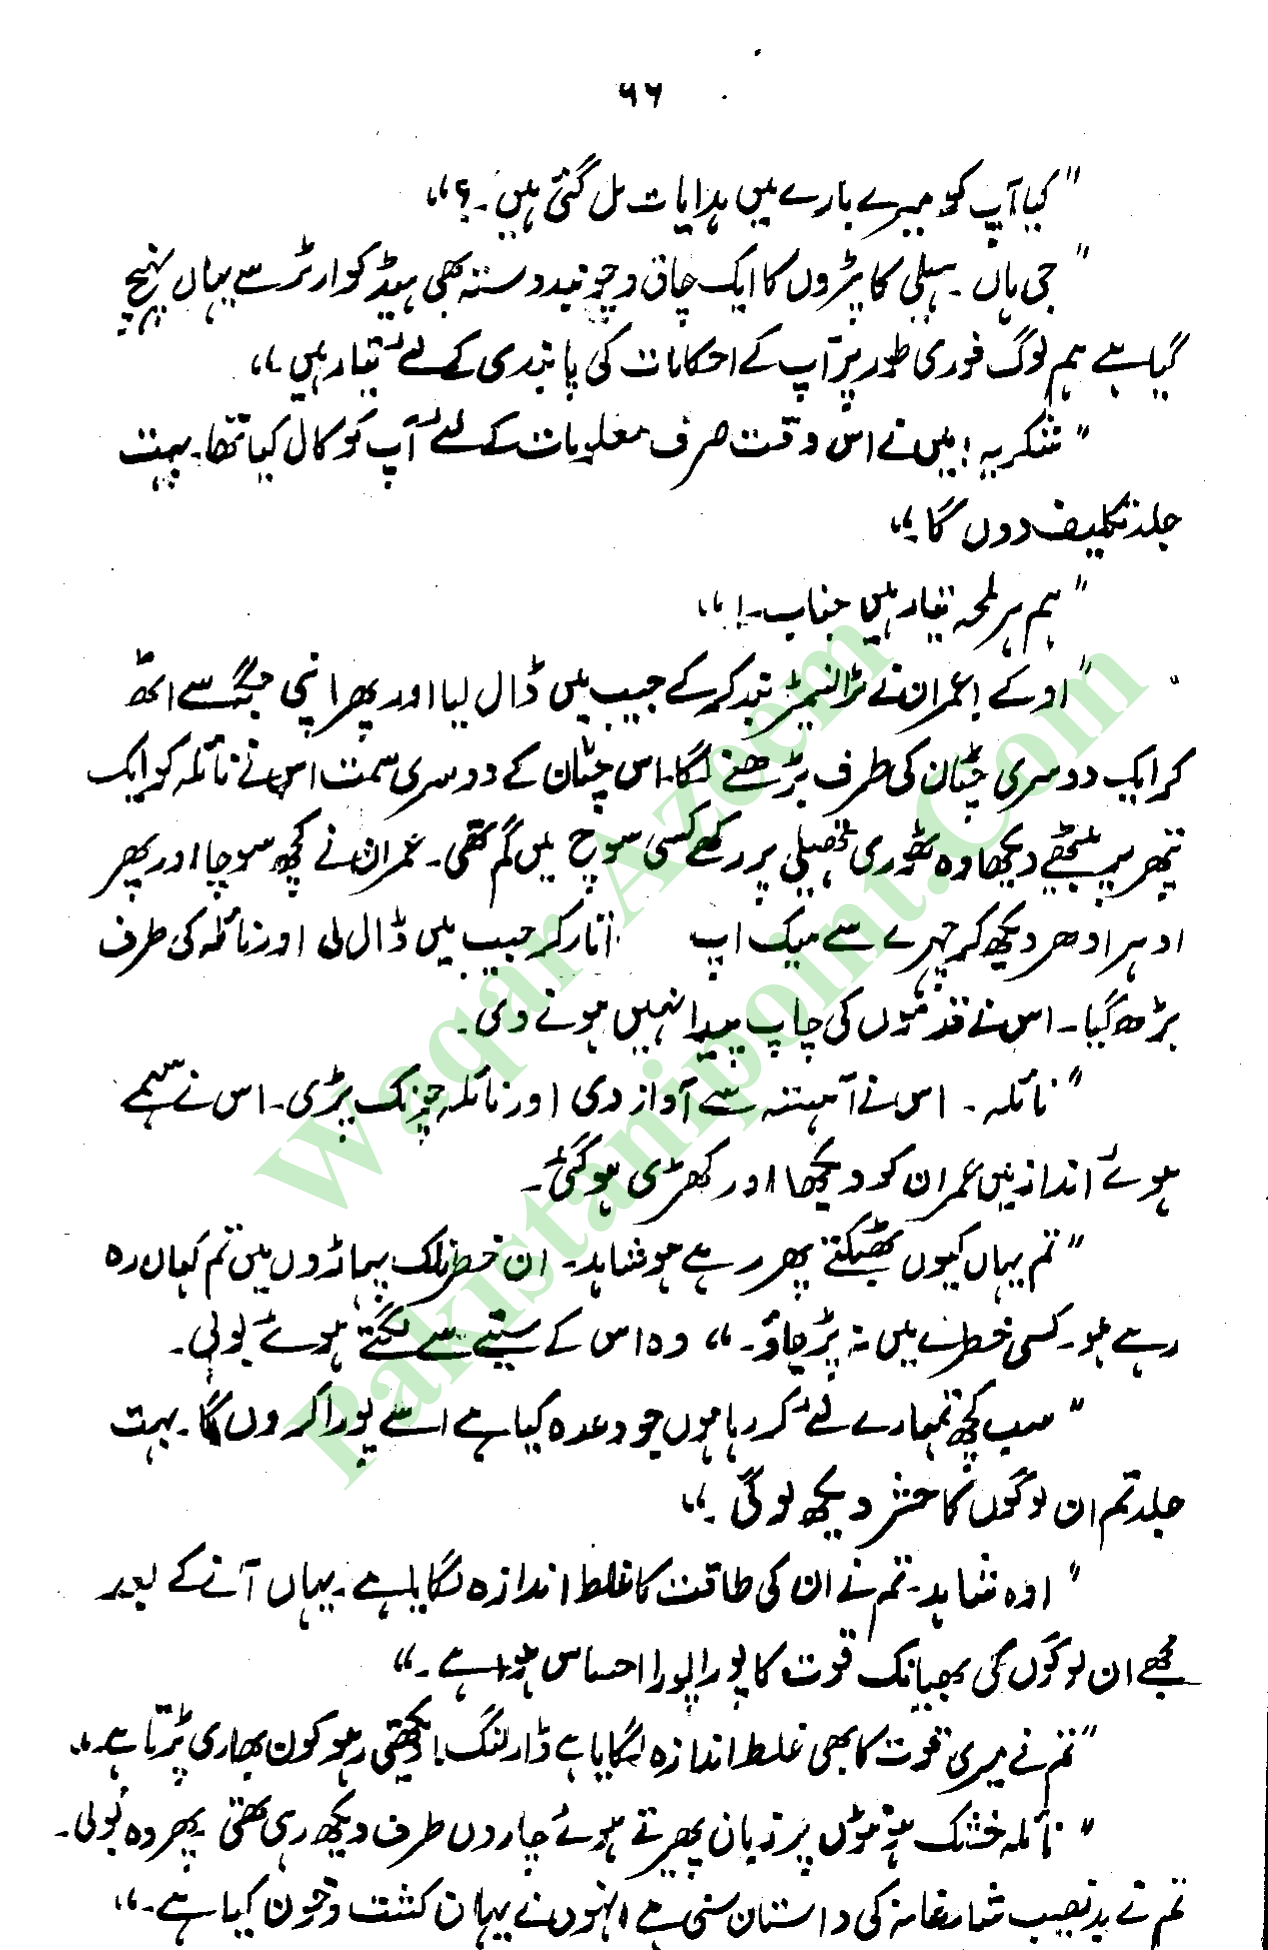 ۹۶
"کیا آپ کو میرے بارے میں ہدایات مل گئی ہیں۔؟"
"جی ہاں۔ ہیلی کاپٹروں کا ایک چاق و چوبند دستہ بھی ہیڈ کوارٹر سے یہاں پہنچ
گیا ہے ہم لوگ فوری طور پر آپ کے احکامات کی پابندی کے لئے تیار ہیں"
"شکریہ! میں نے اس وقت صرف معلومات کے لئے آپ کو کال کیا تھا۔ بہت
جلد تکلیف دوں گا۔"
"ہم ہر لمحہ تیار ہیں جناب۔!"
"او کے! عمران نے ٹرانسمیٹر بند کر کے جیب میں ڈال لیا اور پھر اپنی جگہ سے اٹھ
کر ایک دوسری چٹان کی طرف بڑھنے لگا۔ اس چٹان کے دوسری سمت اس نے نائلہ کو ایک
پتھر پر بیٹھے دیکھا وہ ٹھوڑی ہتھیلی پر رکھے کسی سوچ میں گم تھی۔ عمران نے کچھ سوچا اور پھر
ادہر ادھر دیکھ کر چہرے سے میک اپ اتار کر جیب میں ڈال لی اور نائلہ کی طرف
بڑھ گیا۔ اس نے قدموں کی چاپ پیدا نہیں ہونے دی۔
"نائلہ۔ اس نے آہستہ سے آواز دی اور نائلہ چونک پڑی۔ اس نے سہمے
ہوئے انداز میں عمران کو دیکھا اور کھڑی ہو گئی۔
"تم یہاں کیوں بھٹکتے پھر رہے ہو شاہد۔ ان خطرناک پہاڑوں میں تم کہاں رہ
رہے ہو۔ کسی خطرے میں نہ پڑ جاؤ۔" وہ اس کے سینے سے لگتے ہوئے بولی۔
"سب کچھ تمہارے لئے کر رہا ہوں جو وعدہ کیا ہے اسے پورا کروں گا۔ بہت
جلد تم ان لوگوں کا حشر دیکھ لو گی۔"
"اوہ شاہد۔ تم نے ان کی طاقت کا غلط اندازہ لگایا ہے۔ یہاں آنے کے بعد
مجھے ان لوگوں کی بھیانک قوت کا پورا پورا احساس ہوا ہے۔"
"تم نے میری قوت کا بھی غلط اندازہ لگایا ہے ڈارلنگ! دیکھتی رہو کون بھاری پڑتا ہے۔"
"نائلہ خشک ہونٹوں پر زبان پھیرتے ہوئے چاروں طرف دیکھ رہی تھی۔ پھر وہ بولی۔
تم نے بدنصیب شارغامہ کی داستان سنی ہے انہوں نے یہاں کشت و خون کیا ہے۔"
Waqar Azeem
Pakistanipoint.Com